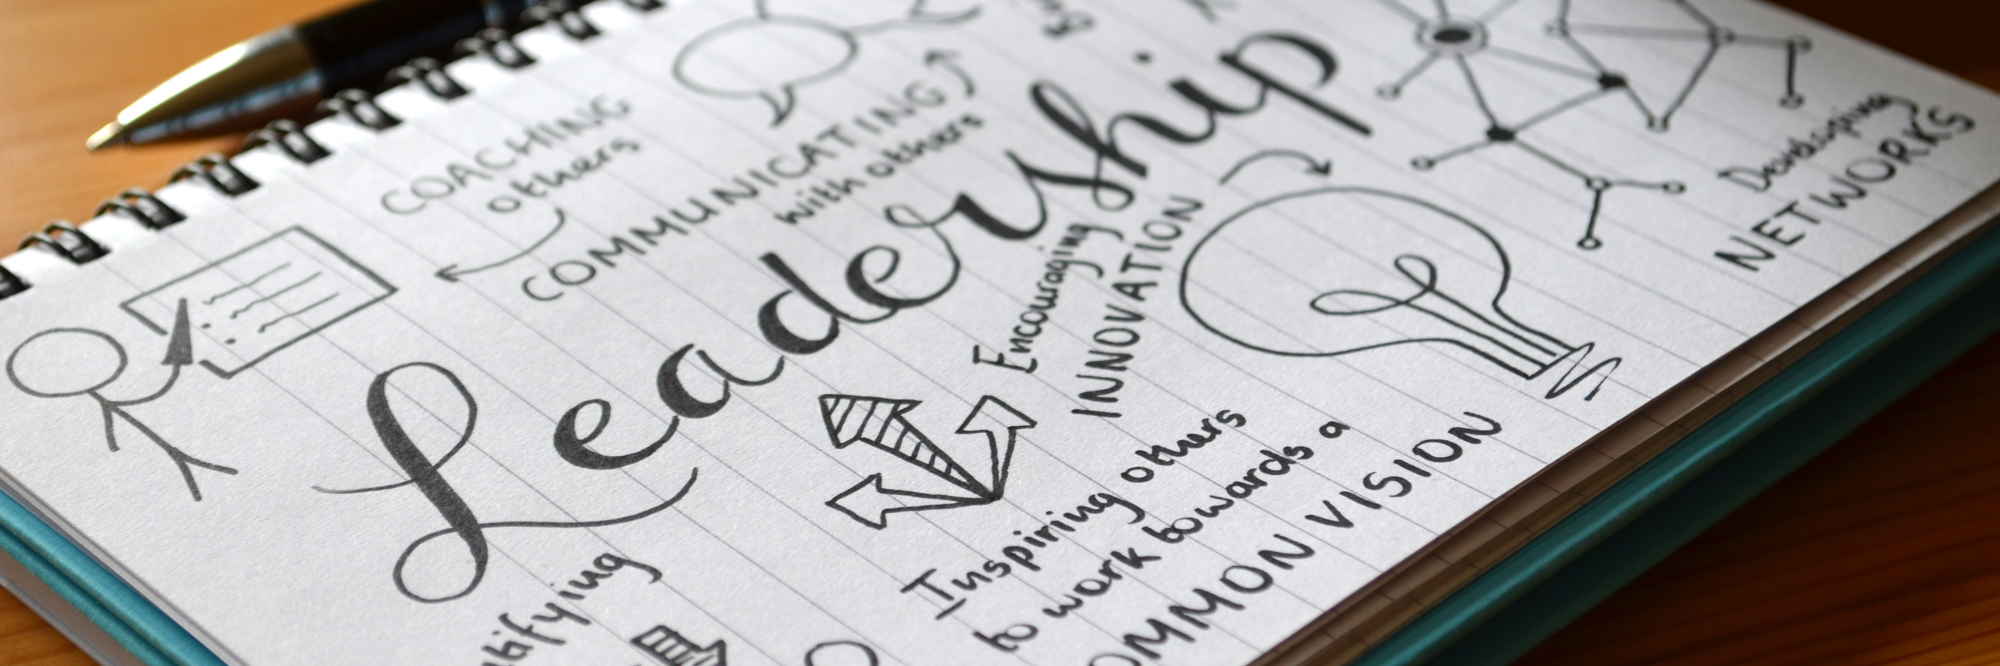 COACHING
others
COMMUNICATING
with others
Leadership
Encouraging
INNOVATION
Developing
NETWORKS
Inspiring others
to work towards a
COMMON VISION